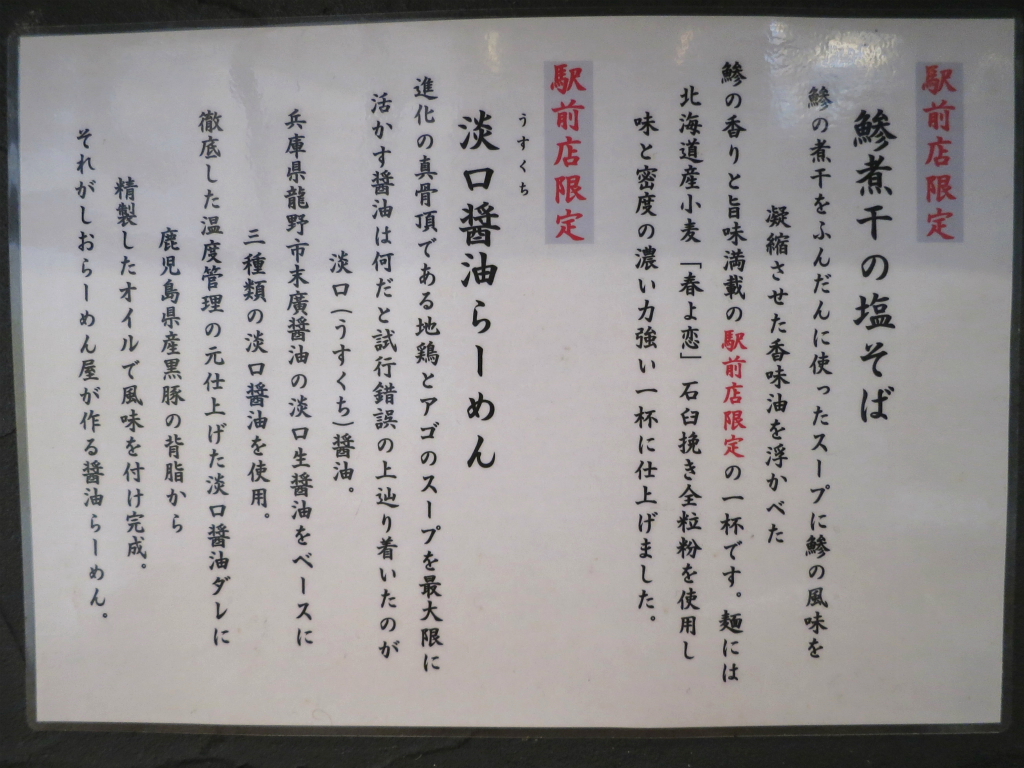 駅前店限定
鯵煮干の塩そば
鯵の煮干をふんだんに使ったスープに鯵の風味を
凝縮させた香味油を浮かべた
鯵の香りと旨味満載の駅前店限定の一杯です。麺には
北海道産小麦「春よ恋」石臼挽き全粒粉を使用し
味と密度の濃い力強い一杯に仕上げました。
駅前店限定
うすくち
淡口醤油らーめん
進化の真骨頂である地鶏とアゴのスープを最大限に
活かす醤油は何だと試行錯誤の上辿り着いたのが
淡口(うすくち)醤油。
兵庫県龍野市末廣醤油の淡口生醤油をベースに
三種類の淡口醤油を使用。
徹底した温度管理の元仕上げた淡口醤油ダレに
鹿児島県産黒豚の背脂から
精製したオイルで風味を付け完成。
それがしおらーめん屋が作る醤油らーめん。